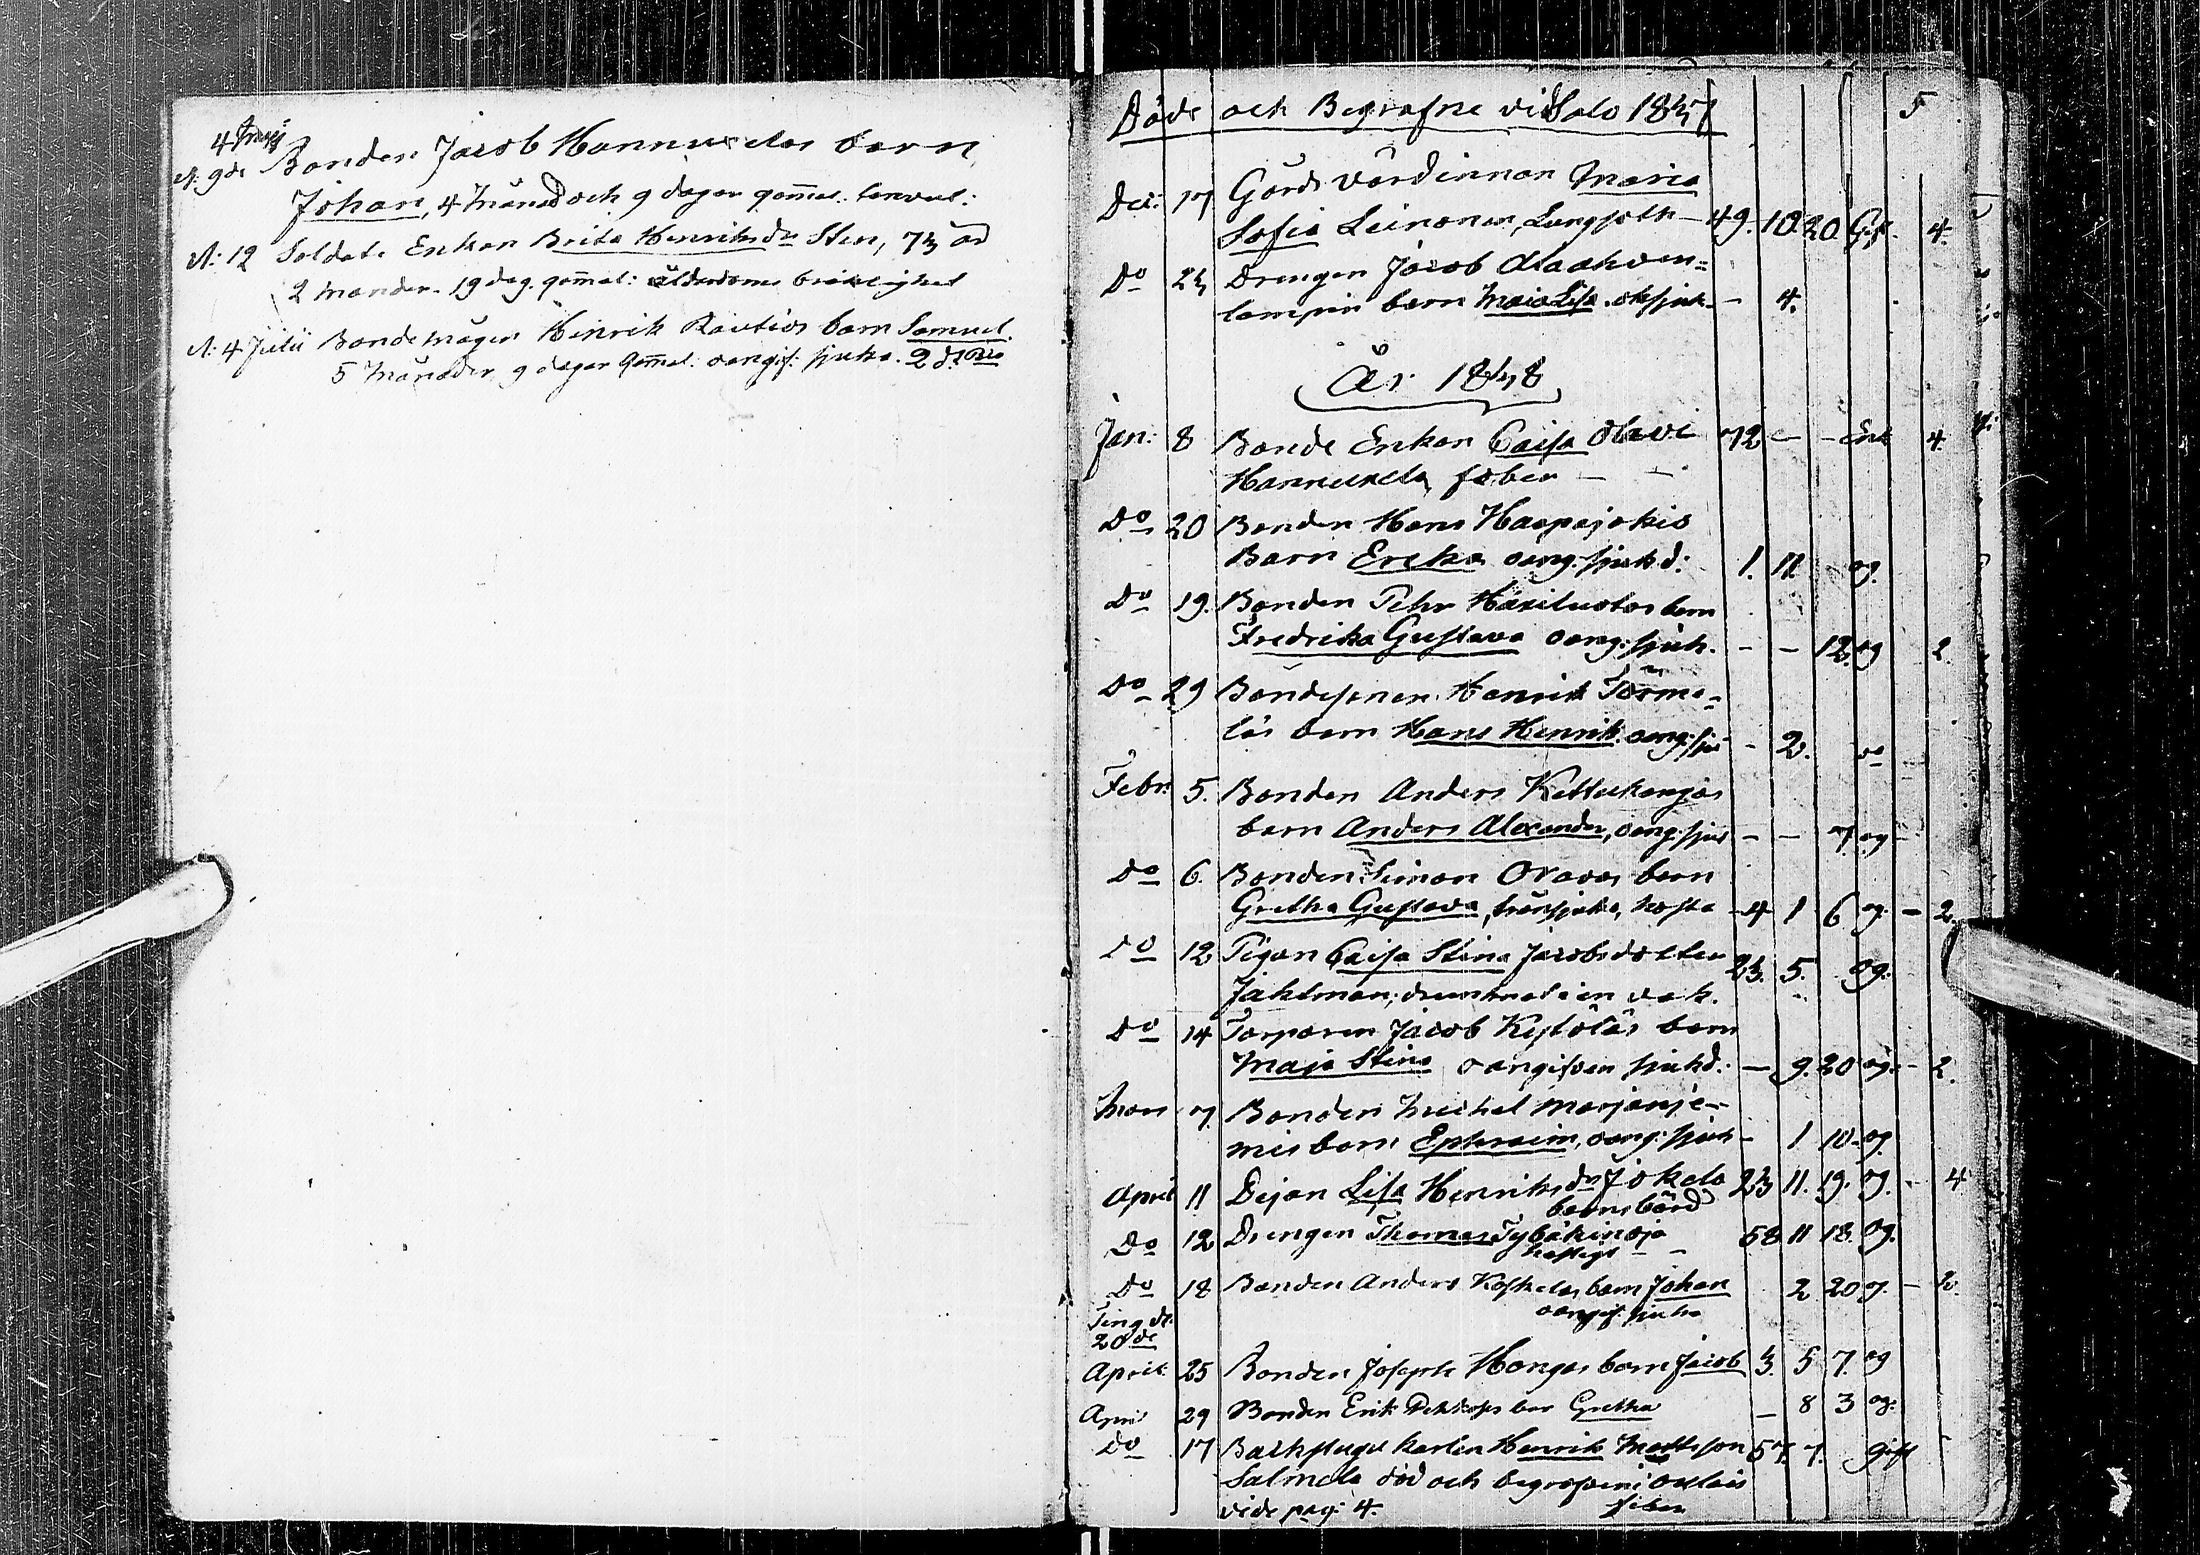 4 Maij
N: 9de Bonden Jacob Hannukselas barn
Johan, 4 Månad och 9 dagar gam̄al.
N: 12 Soldats Enkan Brita Henriksdr Sten, 73 år
2 Månader 19 dag. gam̄al: ålderdoms bräcklighet
N: 4 Julii Bondemågen Henrik Rautios barn Samuel
5 Månader 9 dagar gam̄al. oangif. sjukd.
Döde och Begrafne vid Salo 1847 5
Dec: 17 Gårds Värdinnan Maria
Sofia Leinonen, Lungsoth 49. 10 20 Gift. 4.
Do 24 Drengen Jacob
barn Maja Lisa - 4.
År 1848
Jan: 8 Bonde Enkan Caisa Olavi 72 - - Enk 4.
Hannuksela, feber - -
Do 20 Bonden Hans Haapajokis
Barn Ericka oang. sjukd: 1. 11. og.
Do 19. Bonden Pehr barn
Fredrika Gustava oang: sjuk. - - 12. og 2.
Do 29 Bondesonen Henrik Törmä-
läs barn Hans Henrik oang: sju - 2.
Febr: 5. Bonden Anders Kettukangas
barn Anders Alexander, oang: sjuk - - 7. og -
Do 6. Bonden Simon Oravas barn
Gretha Gustava, hosta 4 1 6 og. - 2.
Do 12 Pigan Caisa Stina Jacobsdotter 23. 5. og.
Jaklman; drunknad i en vak.
Do 14 Torparen Jacob Kestiläs barn
Maja Stina oangifven sjukd: - 9. 20 og. - 2.
Mars 7 Bonden Michel Marjanie-
mis barn Ephraim, oang: sjuk - 1 10 og
April 11 Dejan Lisa Henriksdr Jokela 23 11. 19. og. - 4
barnsbörd
Do 12 Drengen Thomas 58 11 18. og.
hastigt -
Do 18 Bonden Anders Koskelas barn Johan 2 20 og. - 2.
oangif. sjukd
20de
April 25 Bonden Joseph Hangas barn Jacob 3. 5 7. og
April 29 Bonden Erik bar Gretha - 8 3 og.
Do 17 Backstugu karlen Henrik Mattsson 57. 7. gift
Salmela död och begrafven i
vide pag: 4. feber